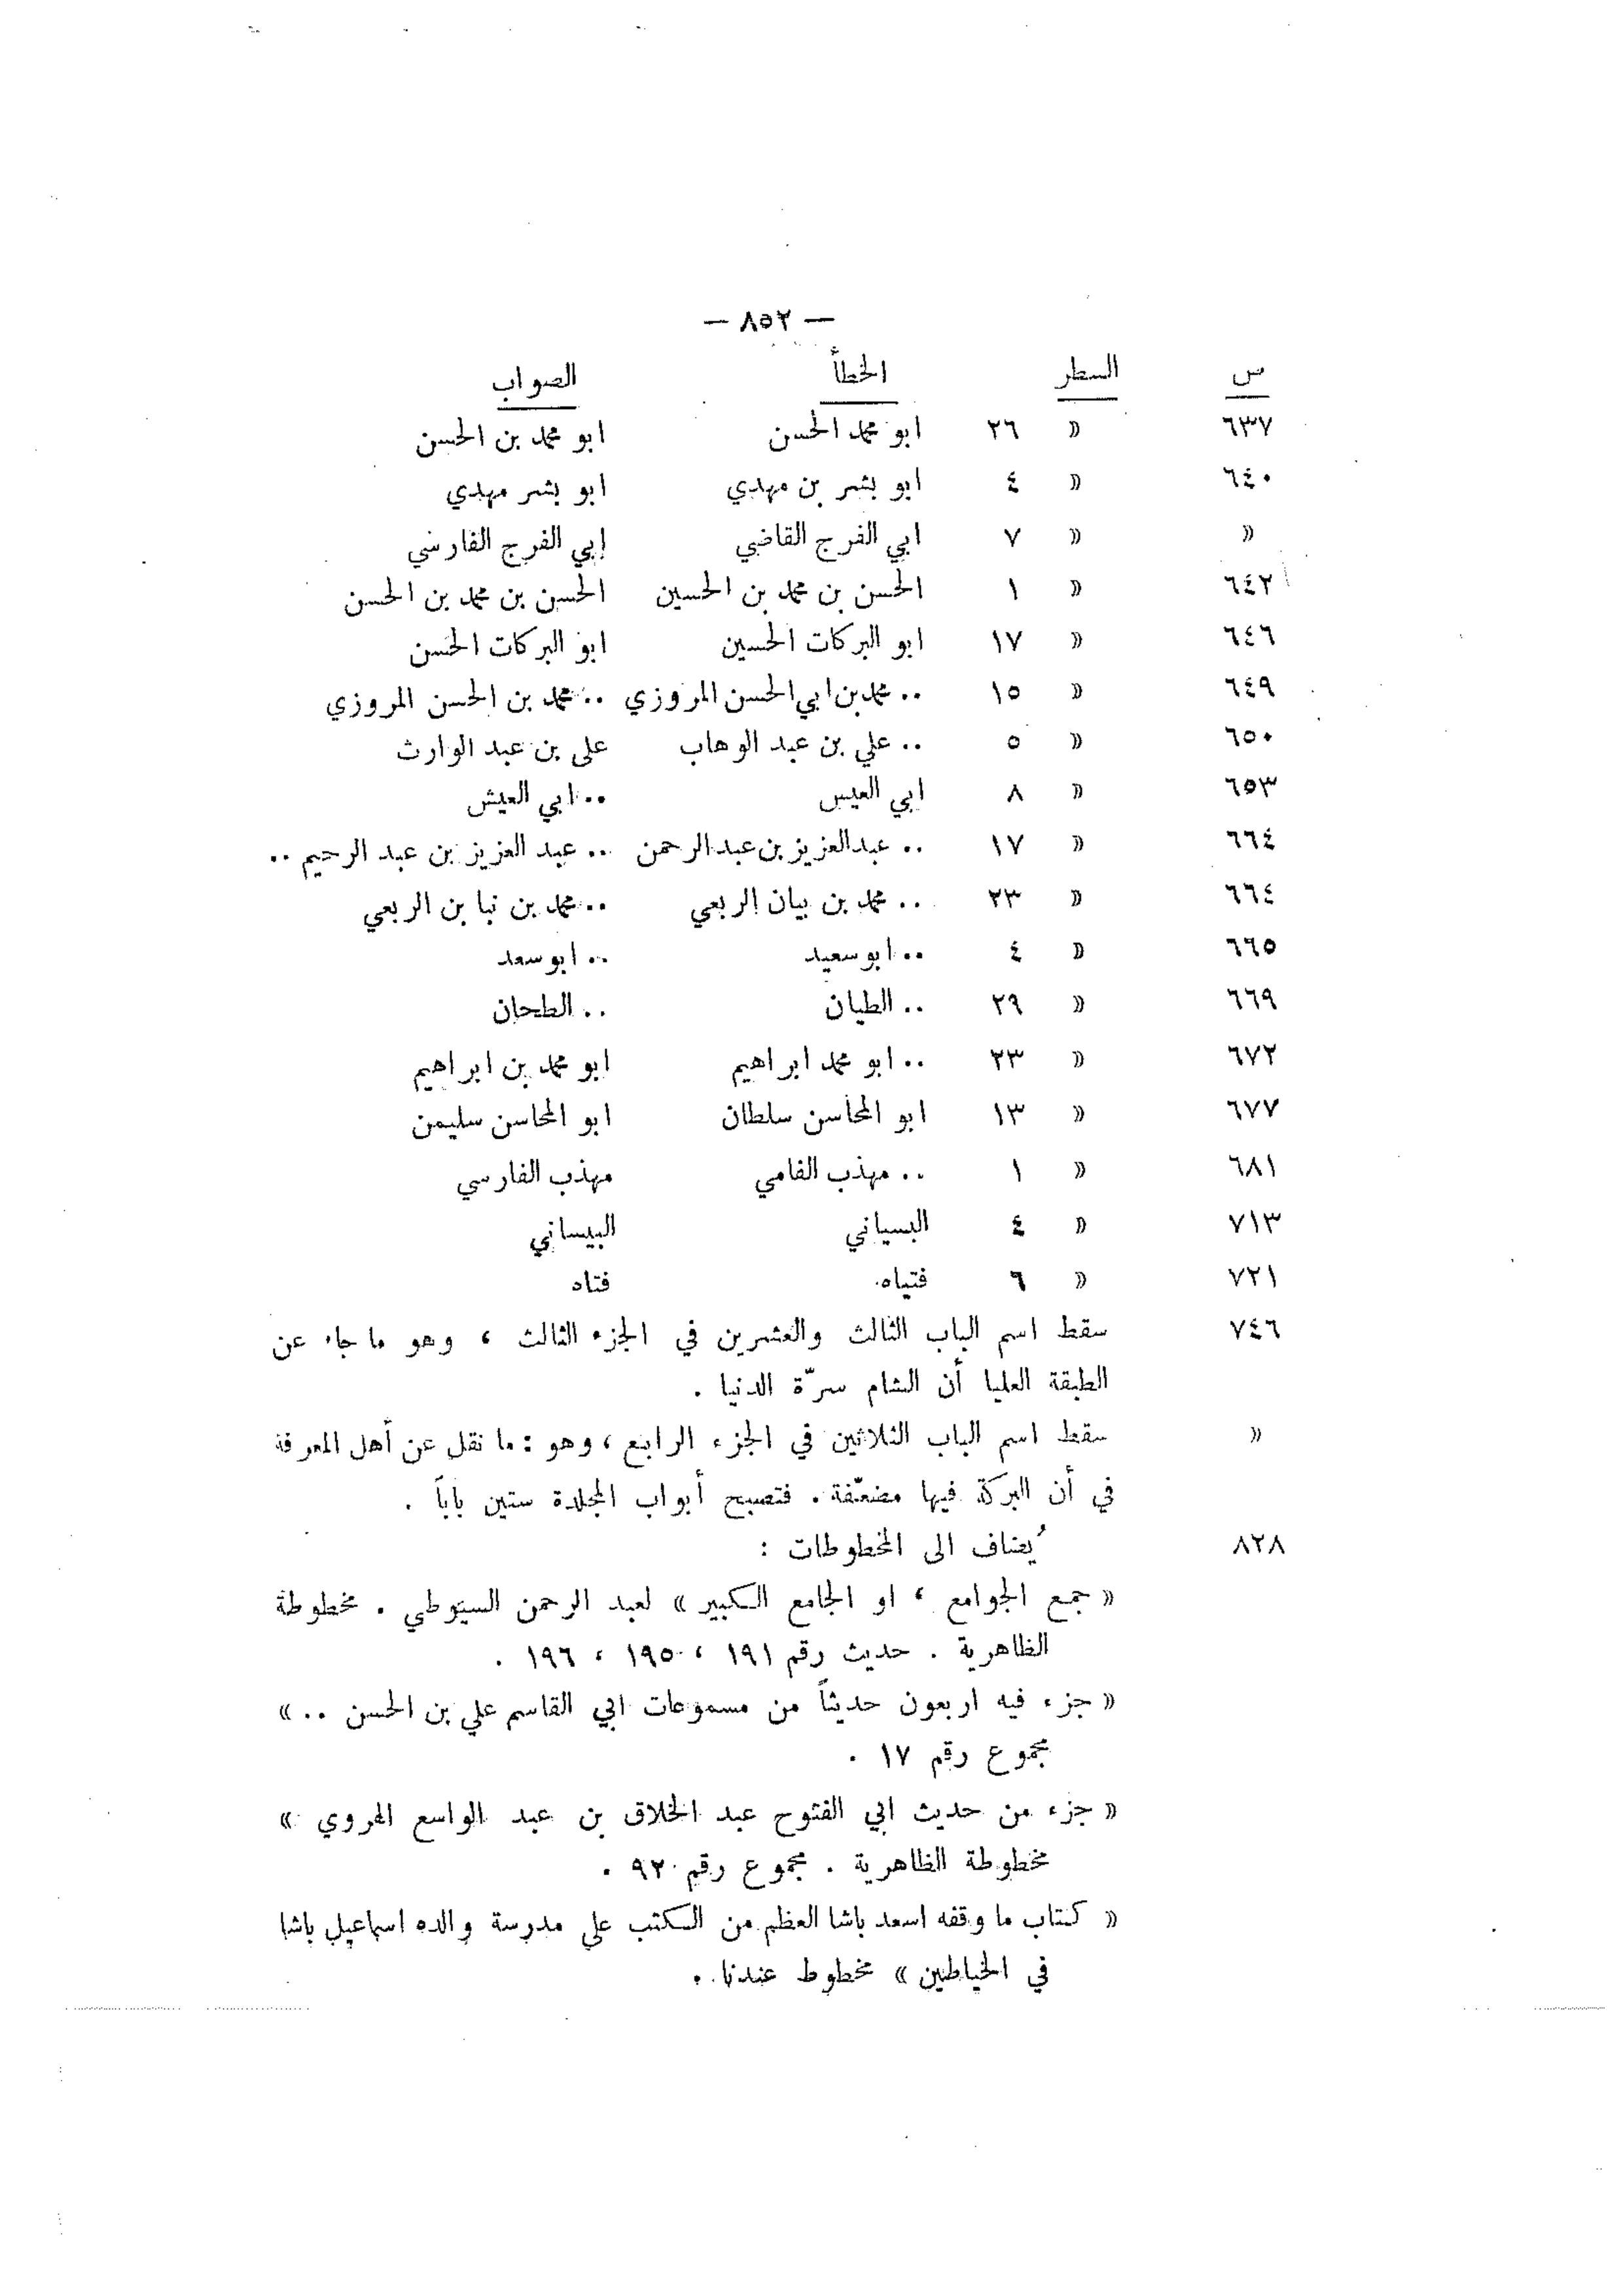 — ٨٥٢ —
ص السطر الخطأ الصواب
٦٣٧ » ٢٦ ابو محمد الحسن ابو محمد بن الحسن
٦٤٠ » ٤ ابو بشر بن مهدي ابو بشر مهدي
» » ٧ ابي الفرج القاضي ابي الفرج الفارسي
٦٤٢ » ١ الحسن بن محمد بن الحسين الحسن بن محمد بن الحسن
٦٤٦ » ١٧ ابو البركات الحسين ابو البركات الحسن
٦٤٩ » ١٥ .. محمد بن ابي الحسن المروزي .. محمد بن الحسن المروزي
٦٥٠ » ٥ .. علي بن عبد الوهاب علي بن عبد الوارث
٦٥٣ » ٨ ابي العيس .. ابي العيش
٦٦٤ » ١٧ .. عبدالعزيز بن عبدالرحمن .. عبد العزيز بن عبد الرحيم ..
٦٦٤ » ٢٣ .. محمد بن بيان الربعي .. محمد بن نبا بن الربعي
٦٦٥ » ٤ .. ابو سعيد .. ابو سعد
٦٦٩ » ٢٩ .. الطيان .. الطحان
٦٧٢ » ٢٣ .. ابو محمد ابراهيم ابو محمد بن ابراهيم
٦٧٧ » ١٣ ابو المحاسن سلطان ابو المحاسن سليمن
٦٨١ » ١ .. مهذب الفامي مهذب الفارسي
٧١٣ » ٤ البسياني البيساني
٧٢١ » ٦ فتياه فتاه
٧٤٦ سقط اسم الباب الثالث والعشرين في الجزء الثالث ، وهو ما جاء عن
الطبقة العليا أن الشام سرّة الدنيا .
» سقط اسم الباب الثلاثين في الجزء الرابع ، وهو : ما نقل عن أهل المعرفة
في أن البركة فيها مضعّفة . فتصبح أبواب المجلدة ستين باباً .
٨٢٨ يُضاف الى المخطوطات :
« جمع الجوامع ، او الجامع الكبير » لعبد الرحمن السيوطي . مخطوطة
الظاهرية . حديث رقم ١٩١ ، ١٩٥ ، ١٩٦ .
« جزء فيه اربعون حديثاً من مسموعات ابي القاسم علي بن الحسن .. »
مجموع رقم ١٧ .
« جزء من حديث ابي الفتوح عبد الخلاق بن عبد الواسع الهروي »
مخطوطة الظاهرية . مجموع رقم ٩٢ .
« كتاب ما وقفه اسعد باشا العظم من الكتب على مدرسة والده اسماعيل باشا
في الخياطين » مخطوط عندنا .